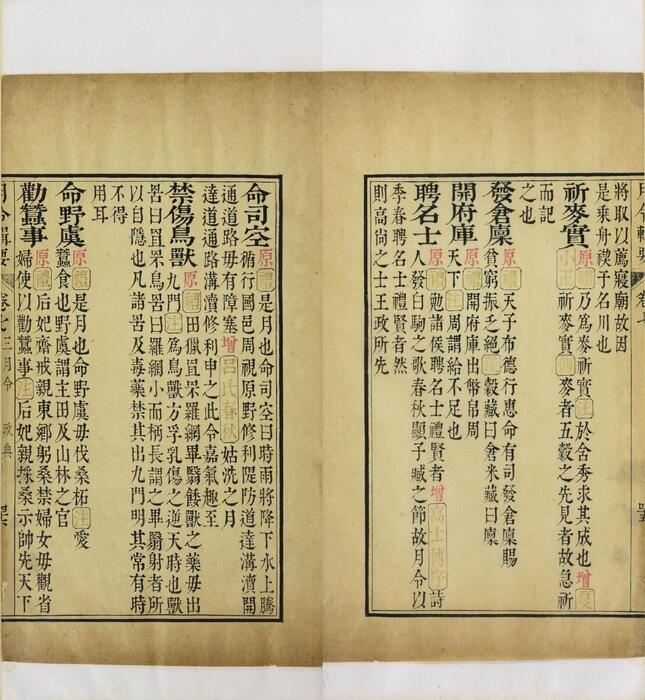 月令輯要 卷七
將取以薦寢廟故因
是乘舟禊于名川也
祈麥實 原禮乃爲麥祈實注於含秀求其成也增夏
小正祈麥實傳麥者五穀之先見者故急祈
而記
之也
發倉廩 原禮天子布德行惠命有司發倉廩賜
貧窮振乏絕疏穀藏曰倉米藏曰廩
開府庫 原禮開府庫出幣帛周
天下注周謂給不足也
聘名士 原禮勉諸侯聘名士禮賢者增高士傳序詩
人發白駒之歌春秋顯子臧之節故月令以
季春聘名士禮賢者然
則高尚之士王政所先
命司空 原禮是月也命司空曰時雨將降下水上騰
循行國邑周視原野修利隄防道達溝瀆開
通道路毋有障塞增呂氏春秋姑洗之月
達道通路溝瀆修利申之此令嘉氣趣至
禁傷鳥獸 原禮田獵罝罘羅網畢翳餧獸之藥毋出
九門注爲鳥獸方孚乳傷之逆天時也獸
罟曰罝罘鳥罟曰羅網小而柄長謂之畢翳射者所
以自隱也凡諸罟及毒藥禁其出九門明其常有時
不得
用耳
命野虞 原禮是月也命野虞毋伐桑柘注愛
蠶食也野虞謂主田及山林之官
勸蠶事 原禮后妃齋戒親東鄉躬桑禁婦女毋觀省
婦使以勸蠶事注后妃親採桑示帥先天下
月令輯要 卷七 三月令 政典